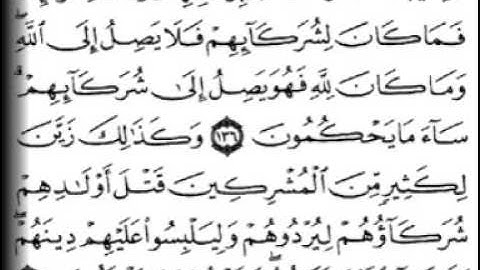 فَمَا كَانَ لِشُرَكَآئِهِمْ فَلَا يَصِلُ إِلَى ٱللَّهِۖ
وَمَا كَانَ لِلَّهِ فَهُوَ يَصِلُ إِلَىٰ شُرَكَآئِهِمْۗ
سَآءَ مَا يَحْكُمُونَ ١٣٦ وَكَذَٰلِكَ زَيَّنَ
لِكَثِيرٍ مِّنَ ٱلْمُشْرِكِينَ قَتْلَ أَوْلَٰدِهِمْ
شُرَكَآؤُهُمْ لِيُرْدُوهُمْ وَلِيَلْبِسُوا۟ عَلَيْهِمْ دِينَهُمْۖ